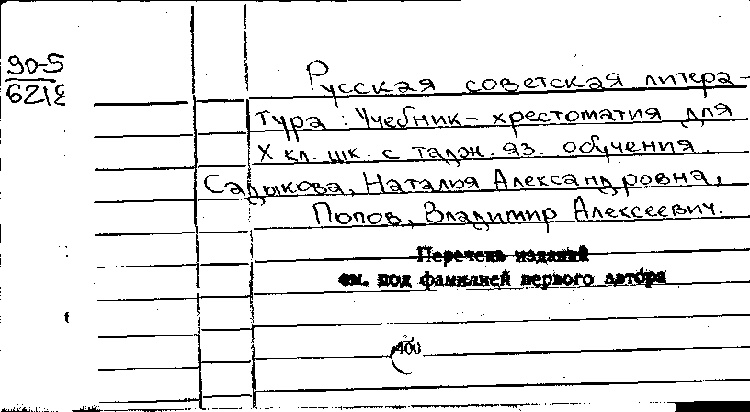 90-5
6218
Русская советская литера-
тура: Учебник-хрестоматия для
X кл. шк. с тадж. яз. обучения.
Садыкова, Наталья Александровна,
Попов, Владимир Алексеевич.
Перечень изданий
см. под фамилией первого автора
400